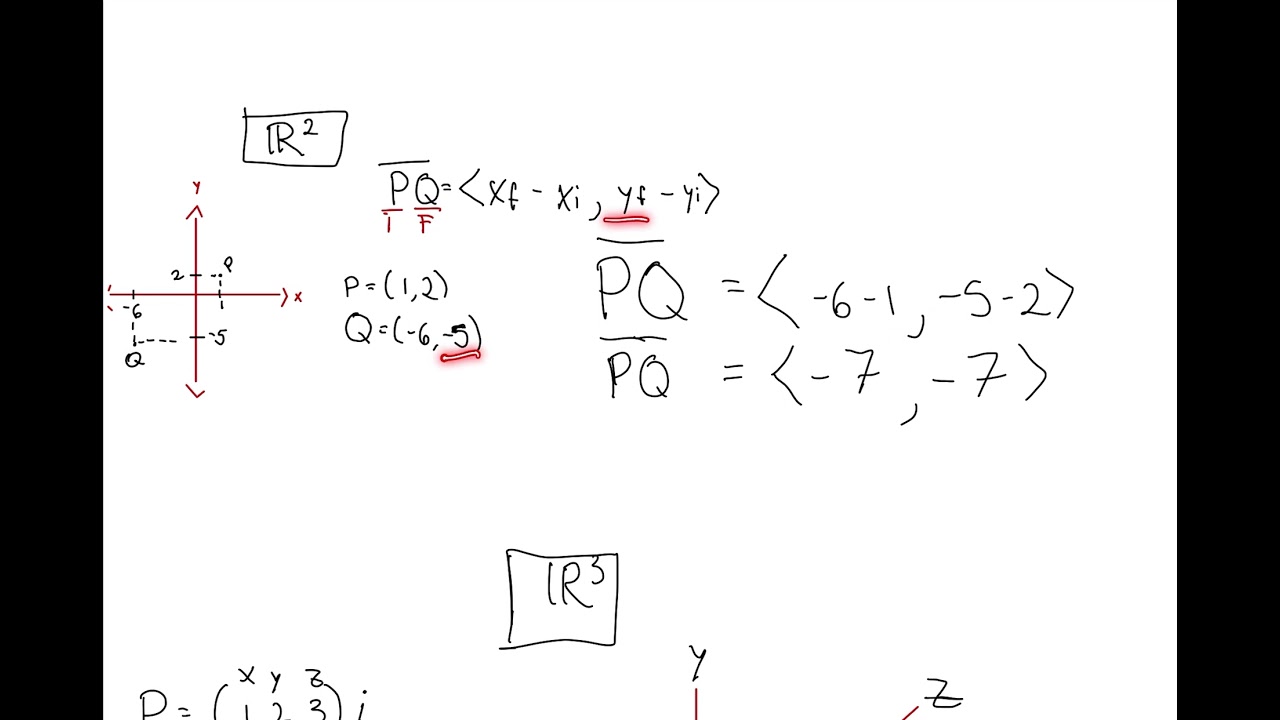 ℝ²
y
PQ = <xf - xi, yf - yi>
i F
2 P
x
-6
-5
Q
P = (1,2)
Q = (-6,-5)
PQ = <-6-1, -5-2>
PQ = <-7, -7>
ℝ³
x y z
P = (1 2 3) i
y
z